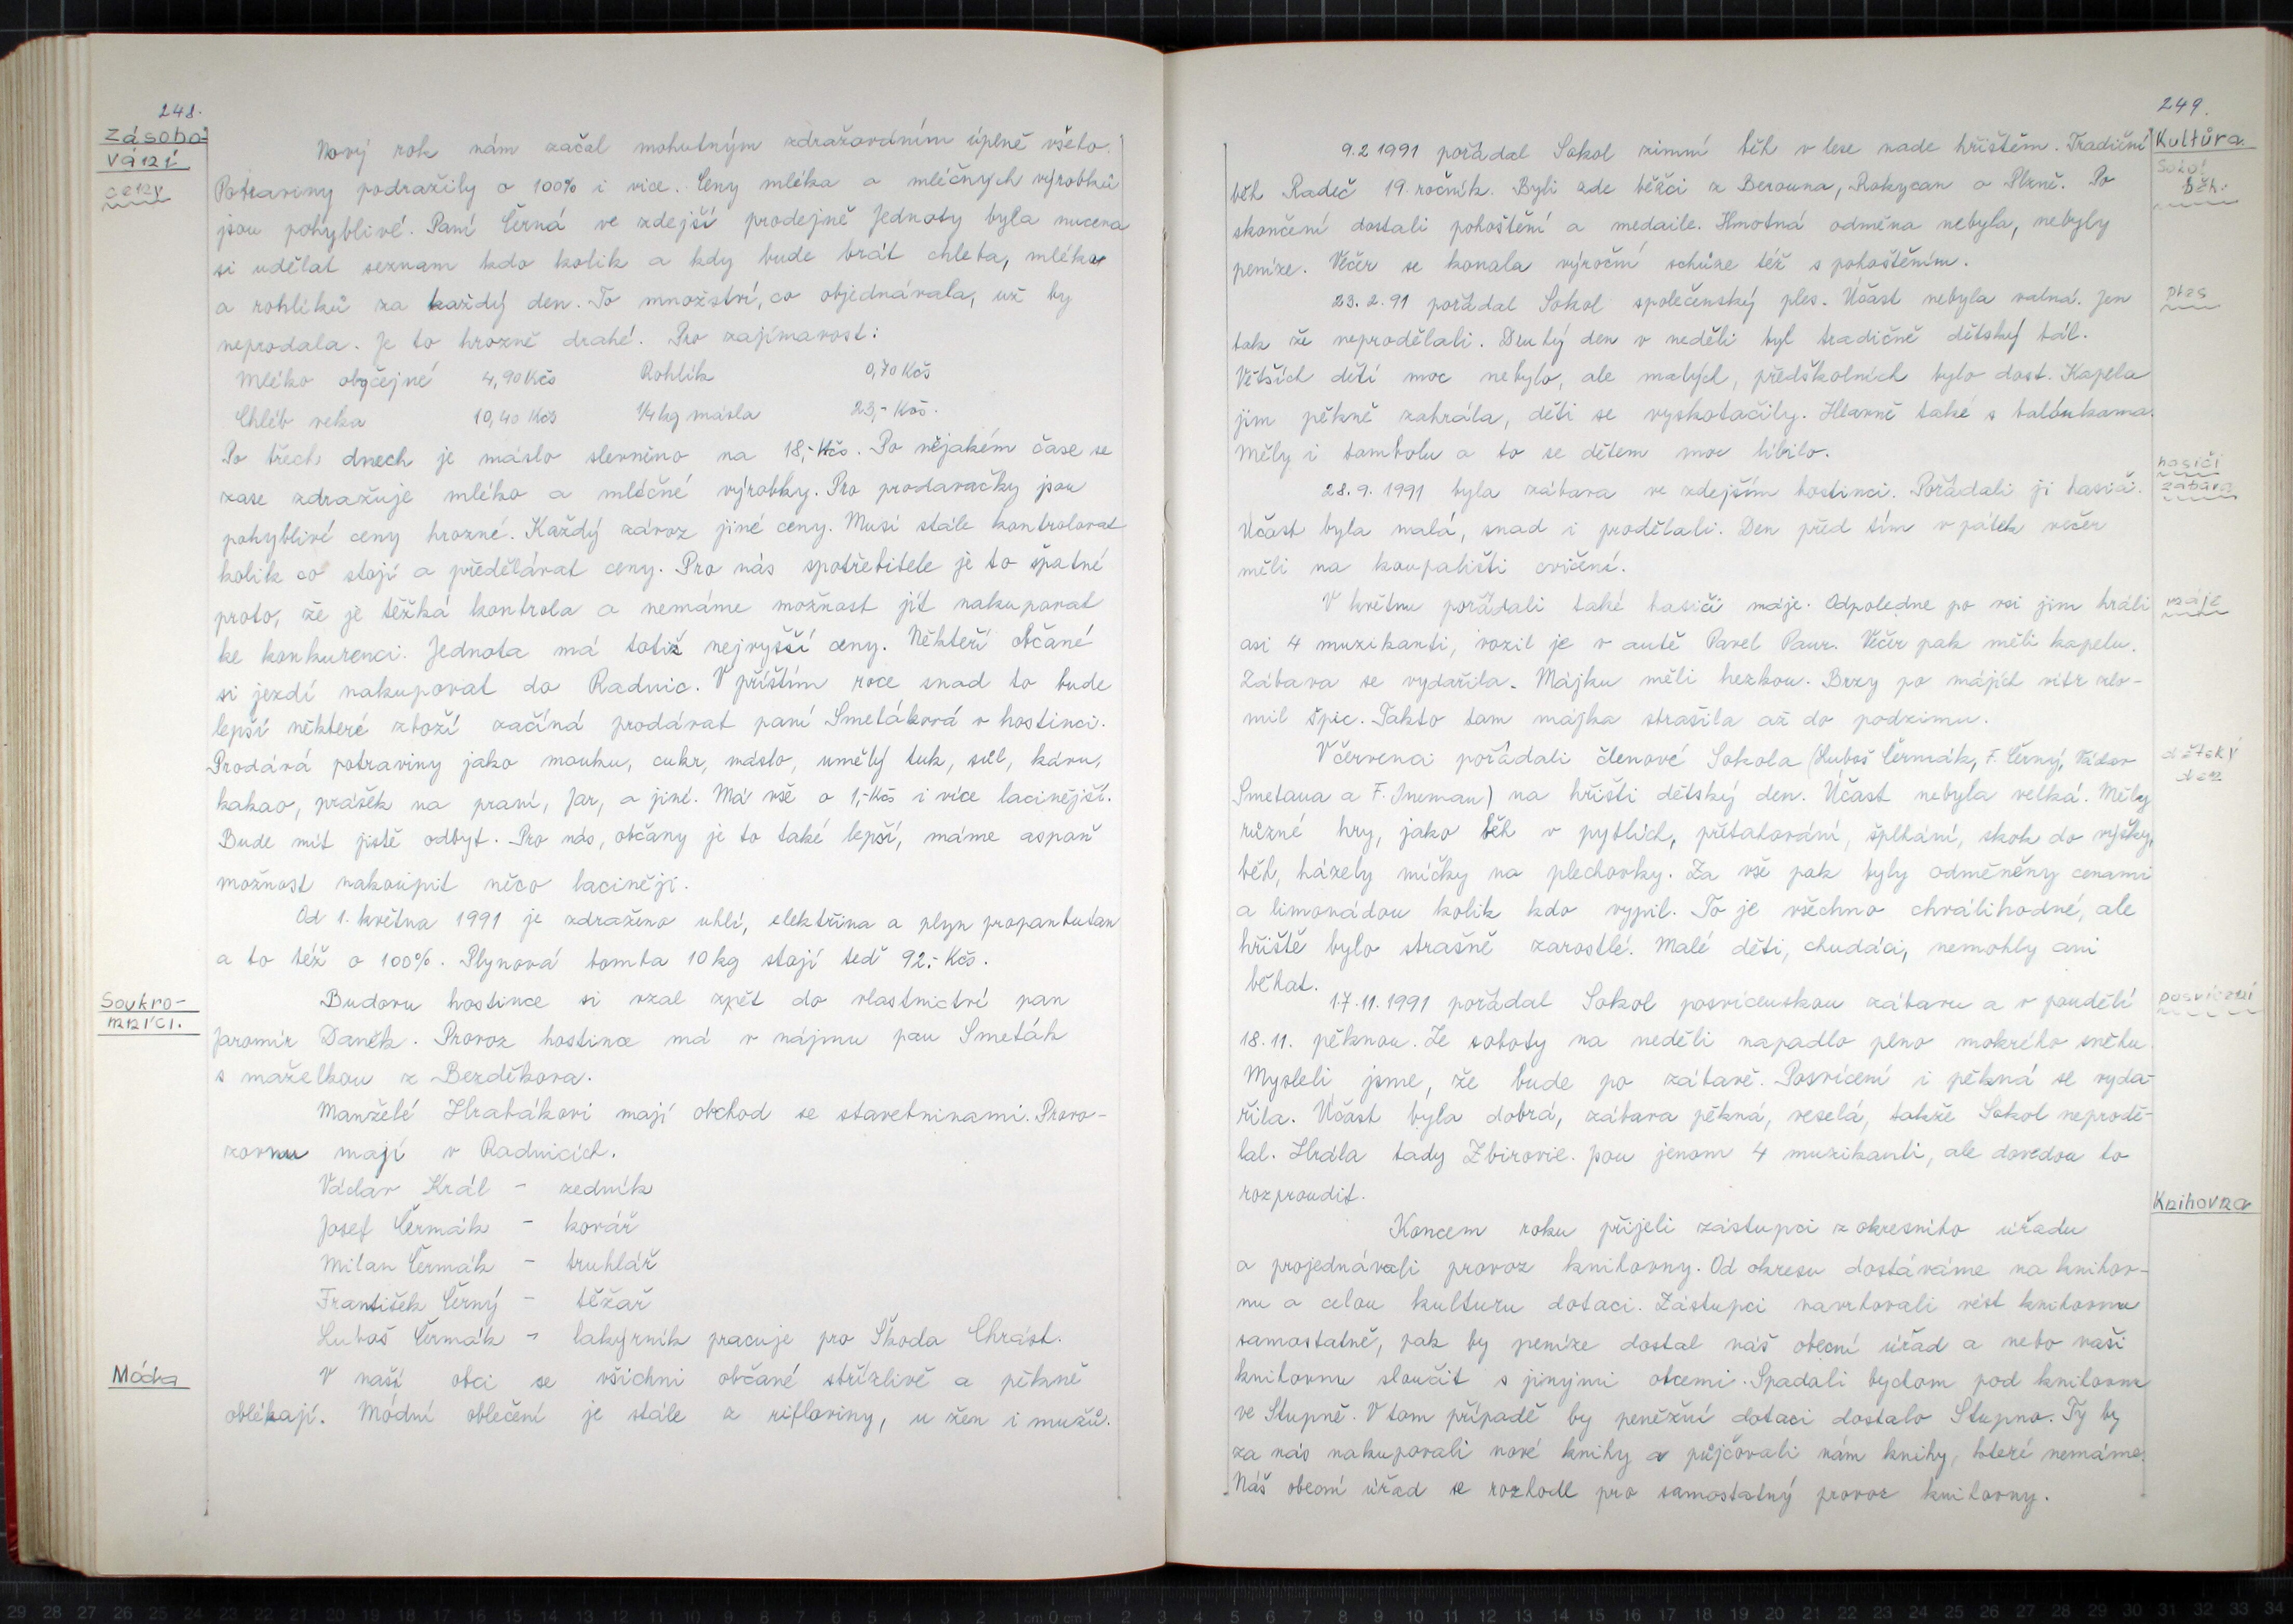 248.
Zásobo-
vání
ceny
Nový rok nám začal mohutným zdražováním úplně všeho.
Potraviny podražily o 100% i více. Ceny mléka a mléčných výrobků
jsou pohyblivé. Paní Černá ve zdejší prodejně Jednoty byla nucena
si udělat seznam kdo kolik a kdy bude brát chleba, mléka
a rohlíků za každý den. To množství, co objednávala, už by
neprodala. Je to hrozně drahé. Pro zajímavost:
Mléko obyčejné 4,90 Kčs Rohlík 0,70 Kčs
Chléb veka 10,40 Kčs 1/4 kg másla 23,- Kčs.
Po třech dnech je máslo slevněno na 18,- Kčs. Po nějakém čase se
zase zdražuje mléko a mléčné výrobky. Pro prodavačky jsou
pohyblivé ceny hrozné. Každý závoz jiné ceny. Musí stále kontrolovat
kolik co stojí a předělávat ceny. Pro nás spotřebitele je to špatné
proto, že je těžká kontrola a nemáme možnost jít nakupovat
ke konkurenci. Jednota má totiž nejvyšší ceny. Někteří občané
si jezdí nakupovat do Radnic. V příštím roce snad to bude
lepší některé zboží začíná prodávat paní Smetáková v hostinci.
Prodává potraviny jako mouku, cukr, máslo, umělý tuk, sůl, kávu,
kakao, prášek na praní, Jar, a jiné. Má vše o 1,- Kčs i více lacinější.
Bude mít jistě odbyt. Pro nás, občany je to také lepší, máme aspoň
možnost nakoupit něco laciněji.
Od 1. května 1991 je zdraženo uhlí, elektřina a plyn propanbutan
a to též o 100%. Plynová bomba 10 kg stojí teď 92.- Kčs.
Soukro-
mníci.
Budovu hostince si vzal zpět do vlastnictví pan
Jaromír Daněk. Provoz hostince má v nájmu pan Smeták
s manželkou z Bezděkova.
Manželé Hrabákovi mají obchod se stavebninami. Provo-
zovnu mají v Radnicích.
Václav Král - zedník
Josef Čermák - kovář
Milan Čermák - truhlář
František Černý - těžař
Luboš Čermák - lakýrník pracuje pro Škoda Chrást.
Móda
V naší obci se všichni občané střízlivě a pěkně
oblékají. Módní oblečení je stále z rifloviny, u žen i mužů.
249.
Kultůra
Sokol
běh.
9.2 1991 pořádal Sokol zimní běh v lese nade hřištěm. Tradiční
běh Radeč 19. ročník. Byli zde běžci z Berouna, Rokycan a Plzně. Po
skončení dostali pohoštění a medaile. Hmotná odměna nebyla, nebyly
peníze. Večer se konala výroční schůze též s pohoštěním.
ples
23.2.91 pořádal Sokol společenský ples. Účast nebyla valná. Jen
tak že neprodělali. Druhý den v neděli byl tradičně dětský bál.
Větších dětí moc nebylo, ale malých, předškolních bylo dost. Kapela
jim pěkně zahrála, děti se vyskotačily. Hlavně také s balónkama.
Měly i tombolu a to se dětem moc líbilo.
hasiči
zábava
28.9.1991 byla zábava ve zdejším hostinci. Pořádali ji hasiči.
Účast byla malá, snad i prodělali. Den před tím v pátek večer
měli na koupališti cvičení.
máje
V květnu pořádali také hasiči máje. Odpoledne po vsi jim hráli
asi 4 muzikanti, vozil je v autě Pavel Paur. Večer pak měli kapelu.
Zábava se vydařila. Májku měli hezkou. Brzy po májích vítr zlo-
mil špic. Takto tam májka strašila až do podzimu.
dětský
den
V červenci pořádali členové Sokola (Luboš Čermák, F. Černý, Václav
Smetana a F. Ineman) na hřišti dětský den. Účast nebyla velká. Měly
různé hry, jako běh v pytlích, přetahování, šplhání, skok do výšky,
běh, házely míčky na plechovky. Za vše pak byly odměněny cenami
a limonádou kolik kdo vypil. To je všechno chválihodné, ale
hřiště bylo strašně zarostlé. Malé děti, chudáci, nemohly ani
běhat.
posvícení
17.11.1991 pořádal Sokol posvícenskou zábavu a v pondělí
18.11. pěknou. Ze soboty na neděli napadlo plno mokrého sněhu.
Mysleli jsme, že bude po zábavě. Posvícení i pěkná se vyda-
řila. Účast byla dobrá, zábava pěkná, veselá, takže Sokol neprodě-
lal. Hrála tady Zbirovie. Jsou jenom 4 muzikanti, ale dovedou to
rozproudit.
Knihovna
Koncem roku přijeli zástupci z okresního úřadu
a projednávali provoz knihovny. Od okresu dostáváme na knihov-
nu a celou kulturu dotaci. Zástupci navrhovali vést knihovnu
samostatně, pak by peníze dostal náš obecní úřad a nebo naši
knihovnu sloučit s jinými obcemi. Spadali bychom pod knihovnu
ve Stupně. V tom případě by peněžní dotaci dostalo Stupno. Ty by
za nás nakupovali nové knihy a půjčovali nám knihy, které nemáme.
Náš obecní úřad se rozhodl pro samostatný provoz knihovny.